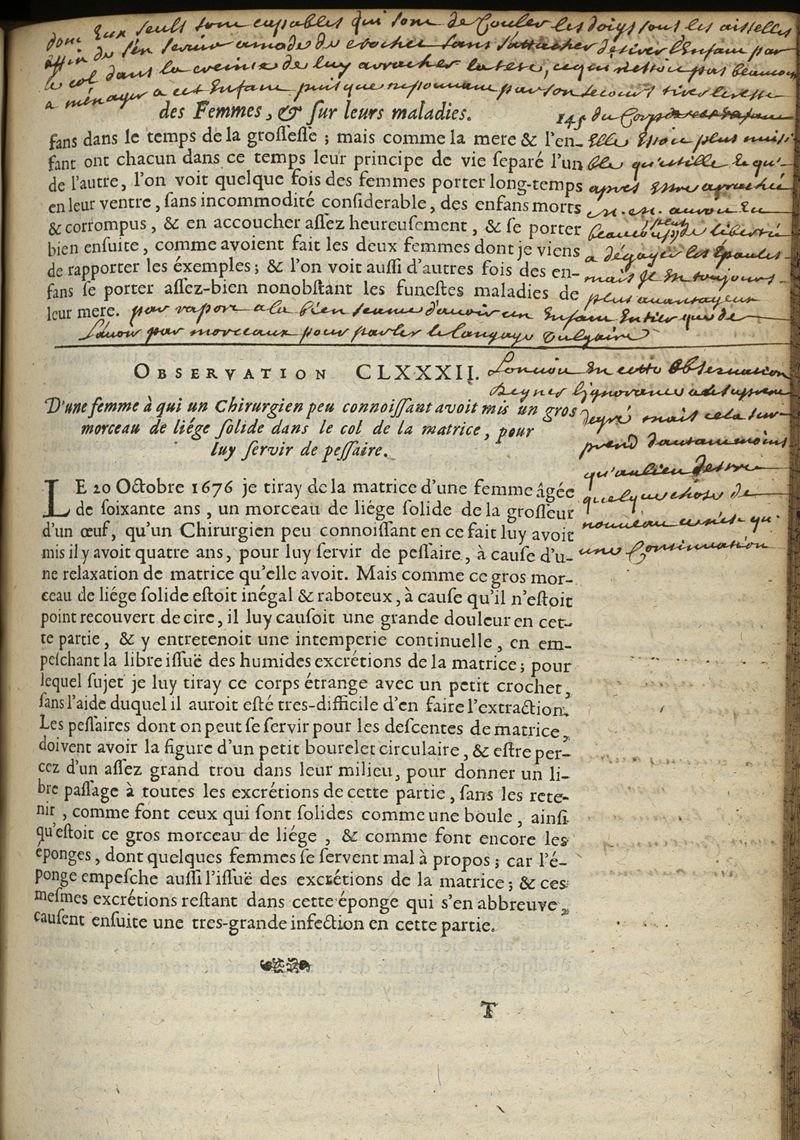 donc eux seuls sont capables qui sont de Couler les doigs sous les aisselles
affin de s'en servir de crochet sans s'attacher de tirer l'enfant par
le col dans la crainte de luy arracher la teste,
a ménager a cet enfant puisque
des Femmes, & sur leurs maladies. 145
fans dans le temps de la grossesse ; mais comme la mere & l'en-
fant ont chacun dans ce temps leur principe de vie separé l'un
de l'autre, l'on voit quelque fois des femmes porter long-temps
en leur ventre, sans incommodité considerable, des enfans morts
& corrompus, & en accoucher assez heureusement, & se porter
bien ensuite, comme avoient fait les deux femmes dont je viens
de rapporter les éxemples ; & l'on voit aussi d'autres fois des en-
fans se porter assez-bien nonobstant les funestes maladies de
leur mere.
du Corps
elle plus nuisi
ble qu'utille
apres
a dégager les épaules
mais je toujours
plus avantageux
par raport a la bien seance d'avoir un enfant entier que de
l'avoir par morceaux pour parler le langage vulgaire
OBSERVATION CLXXXII.
D'une femme à qui un Chirurgien peu connoissant avoit mis un gros
morceau de liége solide dans le col de la matrice, pour
luy servir de pessaire.
L'on voit en cette observation
regner l'ignorance au supreme
degré mais cela sur-
prend d'autant moins
qu'au lieu d'estre
quelque chose de
nouveau ce n'est qu'
une Continuation
LE 20 Octobre 1676 je tiray de la matrice d'une femme âgée
de soixante ans, un morceau de liége solide de la grosseur
d'un œuf, qu'un Chirurgien peu connoissant en ce fait luy avoit
mis il y avoit quatre ans, pour luy servir de pessaire, à cause d'u-
ne relaxation de matrice qu'elle avoit. Mais comme ce gros mor-
ceau de liége solide estoit inégal & raboteux, à cause qu'il n'estoit
point recouvert de cire, il luy causoit une grande douleur en cet-
te partie, & y entretenoit une intemperie continuelle, en em-
peschant la libre issuë des humides excrétions de la matrice ; pour
lequel sujet je luy tiray ce corps étrange avec un petit crochet,
sans l'aide duquel il auroit esté tres-difficile d'en faire l'extraction.
Les pessaires dont on peut se servir pour les descentes de matrice,
doivent avoir la figure d'un petit bourelet circulaire, & estre per-
cez d'un assez grand trou dans leur milieu, pour donner un li-
bre passage à toutes les excrétions de cette partie, sans les rete-
nir, comme font ceux qui sont solides comme une boule, ainsi
qu'estoit ce gros morceau de liége, & comme font encore les
éponges, dont quelques femmes se servent mal à propos ; car l'é-
ponge empesche aussi l'issuë des excrétions de la matrice ; & ces
mesmes excrétions restant dans cette éponge qui s'en abbreuve,
causent ensuite une tres-grande infection en cette partie.
T